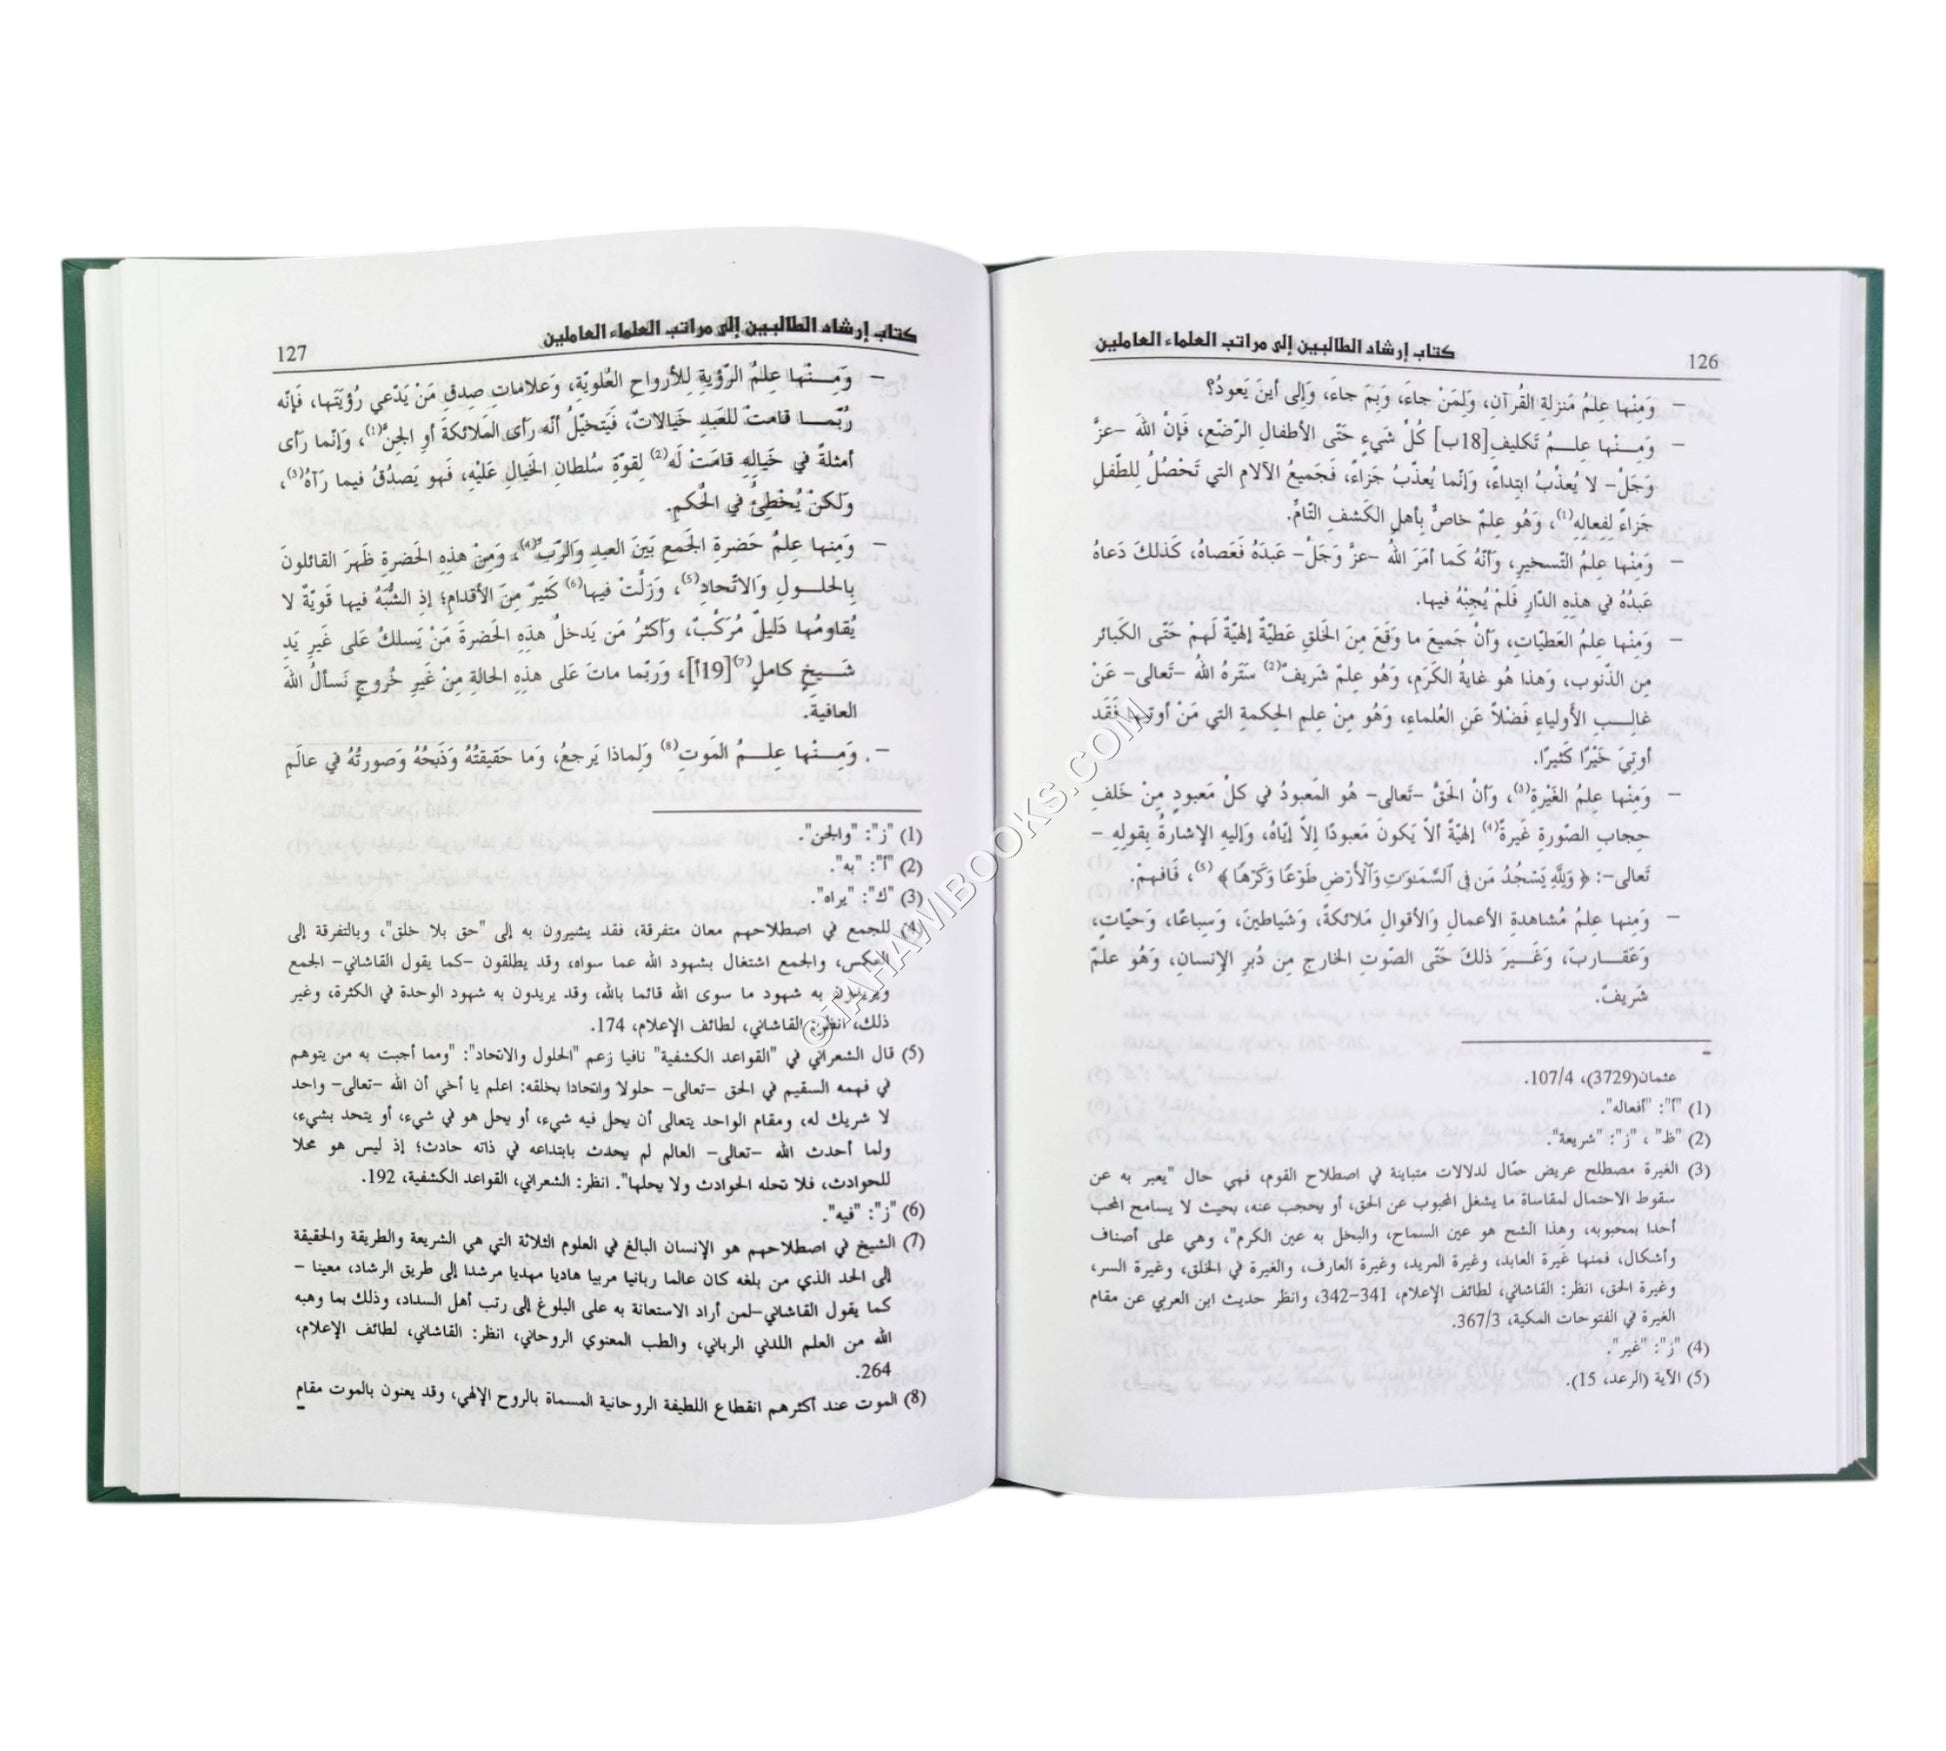 126
كتاب إرشاد الطالبين إلى مراتب العلماء العاملين
– وَمِنْها عِلمُ مَنزلةِ القُرآنِ، وَلِمَنْ جاءَ، وَبِمَ جاءَ، وَإِلى أينَ يَعودُ؟
– وَمِنْها عِلمُ تَكليفِ[18ب] كُلِّ شَيءٍ حَتّى الأطفالِ الرّضّعِ، فَإنَّ اللهَ –عزَّ
وَجَلَّ– لا يُعذّبُ ابتِداءً، وَإنّما يُعذّبُ جَزاءً، فَجَميعُ الآلامِ التي تَحْصُلُ لِلطّفلِ
جَزاءً لِفِعالِهِ(1)، وَهُو عِلمٌ خاصٌّ بِأهلِ الكَشفِ التّامِّ.
– وَمِنْها عِلمُ التّسخيرِ، وَأنّهُ كَما أمَرَ اللهُ –عزَّ وَجَلَّ– عبَدَهُ فَعَصاهُ، كَذلكَ دَعاهُ
عَبدُهُ في هذِهِ الدّارِ فَلمْ يُجِبْهُ فيها.
– وَمِنْها عِلمُ العَطيّاتِ، وَأنَّ جَميعَ ما وَقَعَ مِنَ الخَلقِ عَطيّةٌ إلهيّةٌ لَهمْ حَتّى الكَبائر
مِن الذّنوبِ، وَهذا هُو غايةُ الكَرَمِ، وَهُو عِلمٌ شَريفٌ(2) سَتَرهُ اللهُ –تَعالى– عَنْ
غالِبِ الأَولياءِ فَضْلاً عَنِ العُلماءِ، وَهُو مِنْ عِلمِ الحِكمةِ التي مَنْ أوتيها فَقَد
أوتِيَ خَيْرًا كَثيرًا.
– وَمِنْها عِلمُ الغَيْرةِ(3)، وَأنَّ الحَقَّ –تَعالى– هُو المَعبودُ في كلِّ مَعبودٍ مِنْ خَلفِ
حِجابِ الصّورةِ غَيرةً(4) إلهيّةً ألاّ يَكونَ مَعبودًا إلاّ إيّاهُ، وَإليهِ الإشارةُ بِقولِهِ –
تَعالى–: ﴿ وَلِلَّهِ يَسْجُدُ مَن فِى ٱلسَّمَٰوَٰتِ وَٱلْأَرْضِ طَوْعًا وَكَرْهًا ﴾ (5)، فَافهمْ.
– وَمِنها عِلمُ مُشاهدةِ الأعمالِ وَالأقوالِ مَلائكةً، وَشَياطينَ، وَسِباعًا، وَحيّاتٍ،
وَعَقاربَ، وَغَيرَ ذلكَ حَتّى الصّوتِ الخارجِ مِن دُبرِ الإنسانِ، وَهُو عِلمٌ
شَريفٌ.
عثمان(3729)، 107/4.
(1) "أ": "أفعاله".
(2) "ظ" ، "ز": "شريعة".
(3) الغيرة مصطلح عريض حمّال لدلالات متباينة في اصطلاح القوم، فهي حال "يعبر به عن
سقوط الاحتمال لمقاساة ما يشغل المحبوب عن الحق، أو يحجب عنه، بحيث لا يسامح المحب
أحدا بمحبوبه، وهذا الشح هو عين السماح، والبخل به عين الكرم"، وهي على أصناف
وأشكال، فمنها غَيرة العابد، وغيرة المريد، وغيرة العارف، والغيرة في الخلق، وغيرة السر،
وغيرة الحق، انظر: القاشاني، لطائف الإعلام، 341–342، وانظر حديث ابن العربي عن مقام
الغيرة في الفتوحات المكية، 367/3.
(4) "ز": "غير".
(5) الآية (الرعد، 15).
كتاب إرشاد الطالبين إلى مراتب العلماء العاملين
127
– وَمِنْها عِلمُ الرّؤيةِ لِلأرواحِ العُلويّةِ، وَعلاماتِ صِدقِ مَنْ يَدّعي رُؤيَتَها، فَإنّه
رُبّما قامَتْ للعَبدِ خَيالاتٌ، فَيَتخيّلُ أنّه رَأى المَلائكةَ أوِ الجِنَّ(1)، وَإنّما رَأى
أمثلةً في خَيالِهِ قامَتْ لَه(2) لِقوّةِ سُلطانِ الخَيالِ عَليْهِ، فَهو يَصدُقُ فيما رَآهُ(3)،
وَلكنْ يُخْطِئُ في الحُكمِ.
– وَمِنها عِلمُ حَضرةِ الجَمعِ بَيَن العبدِ وَالرّبِّ(4)، وَمِنْ هذِهِ الحَضرةِ ظَهَرَ القائلونَ
بِالحلولِ وَالاتّحادِ(5)، وَزلَّتْ فيها(6) كَثيرٌ مِنَ الأقدامِ؛ إذِ الشُّبَهُ فيها قَويّةٌ لا
يُقاومُها دَليلٌ مُركّبٌ، وَأكثرُ مَن يَدخلُ هذِهِ الحَضرةَ مَنْ يَسلكُ عَلى غَيرِ يَدِ
شَيخٍ كاملٍ(7)[19أ]، وَرَبّما ماتَ عَلى هذِهِ الحالةِ مِنْ غَيرِ خُروجٍ نَسألُ اللهَ
العافيةَ.
– . وَمِنْها عِلمُ المَوتِ(8) وَلِماذا يَرجعُ، وَما حَقيقتُهُ وَذَبحُهُ وَصورتُهُ في عالَمِ
(1) "ز": "والجن".
(2) "أ": "به".
(3) "ك": "يراه".
(4) للجمع في اصطلاحهم معان متفرقة، فقد يشيرون به إلى "حق بلا خلق"، وبالتفرقة إلى
العكس، والجمع اشتغال بشهود الله عما سواه، وقد يطلقون –كما يقول القاشاني– الجمع
ويريدون به شهود ما سوى الله قائما بالله، وقد يريدون به شهود الوحدة في الكثرة، وغير
ذلك، انظر: القاشاني، لطائف الإعلام، 174.
(5) قال الشعراني في "القواعد الكشفية" نافيا زعم "الحلول والاتحاد": "ومما أجبت به من يتوهم
في فهمه السقيم في الحق –تعالى– حلولا واتحادا بخلقه: اعلم يا أخي أن الله –تعالى– واحد
لا شريك له، ومقام الواحد يتعالى أن يحل فيه شيء، أو يحل هو في شيء، أو يتحد بشيء،
ولما أحدث الله –تعالى– العالم لم يحدث بابتداعه في ذاته حادث؛ إذ ليس هو محلا
للحوادث، فلا تحله الحوادث ولا يحلها". انظر: الشعراني، القواعد الكشفية، 192.
(6) "ز": "فيه".
(7) الشيخ في اصطلاحهم هو الإنسان البالغ في العلوم الثلاثة التي هي الشريعة والطريقة والحقيقة
إلى الحد الذي من بلغه كان عالما ربانيا مربيا هاديا مهديا مرشدا إلى طريق الرشاد، معينا –
كما يقول القاشاني–لمن أراد الاستعانة به على البلوغ إلى رتب أهل السداد، وذلك بما وهبه
الله من العلم اللدني الرباني، والطب المعنوي الروحاني، انظر: القاشاني، لطائف الإعلام،
264.
(8) الموت عند أكثرهم انقطاع اللطيفة الروحانية المسماة بالروح الإلهي، وقد يعنون بالموت مقام
©TAHAWIBOOKS.COM